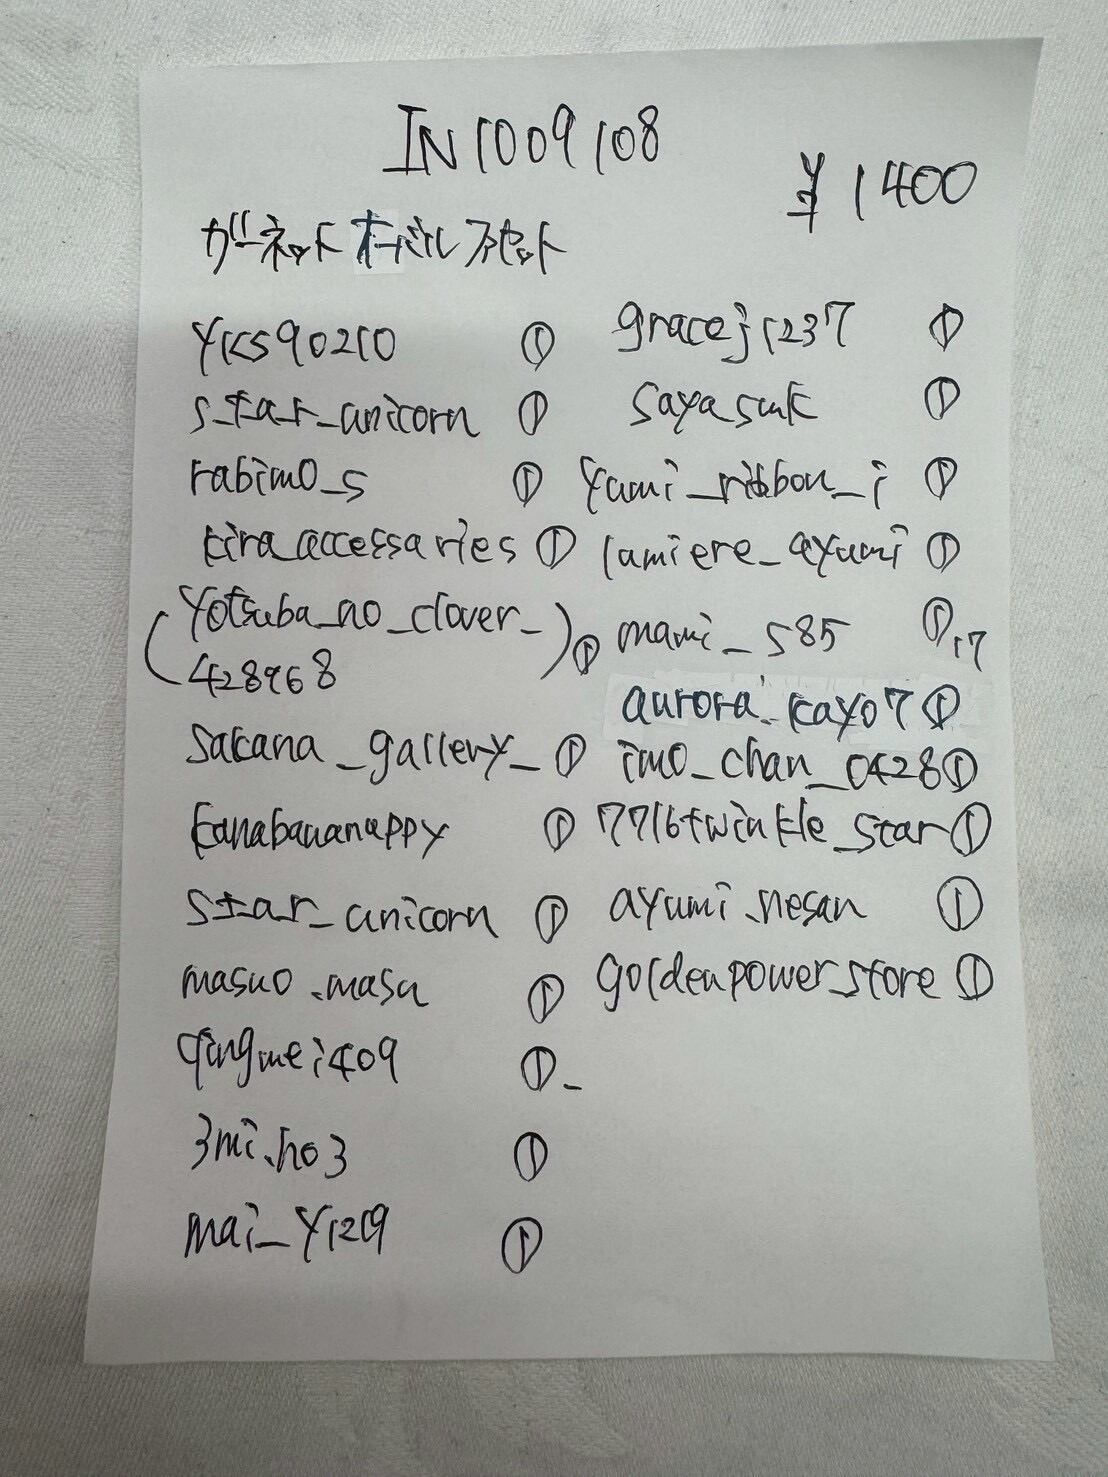 IN1009108
¥1400
ガーネットオーバルファセット
yks90210 ①
star_unicorn ①
rabimo_s ①
kira_accessaries ①
(yotsuba_no_clover_
428968) ①
sakana_gallery_ ①
kanabananappy ①
star_unicorn ①
masuo.masa ①
qingmei409 ①_
3mi.ho3 ①
mai_y1219 ①
gracej1237 ①
saya_suk ①
yumi_ribbon_i ①
lumiere_ayumi ①
mami_s85 ①,17
aurora.kayo7 ①
imo_chan_0428 ①
7716twinkle_star ①
ayumi.nesan ①
goldenpower_store ①